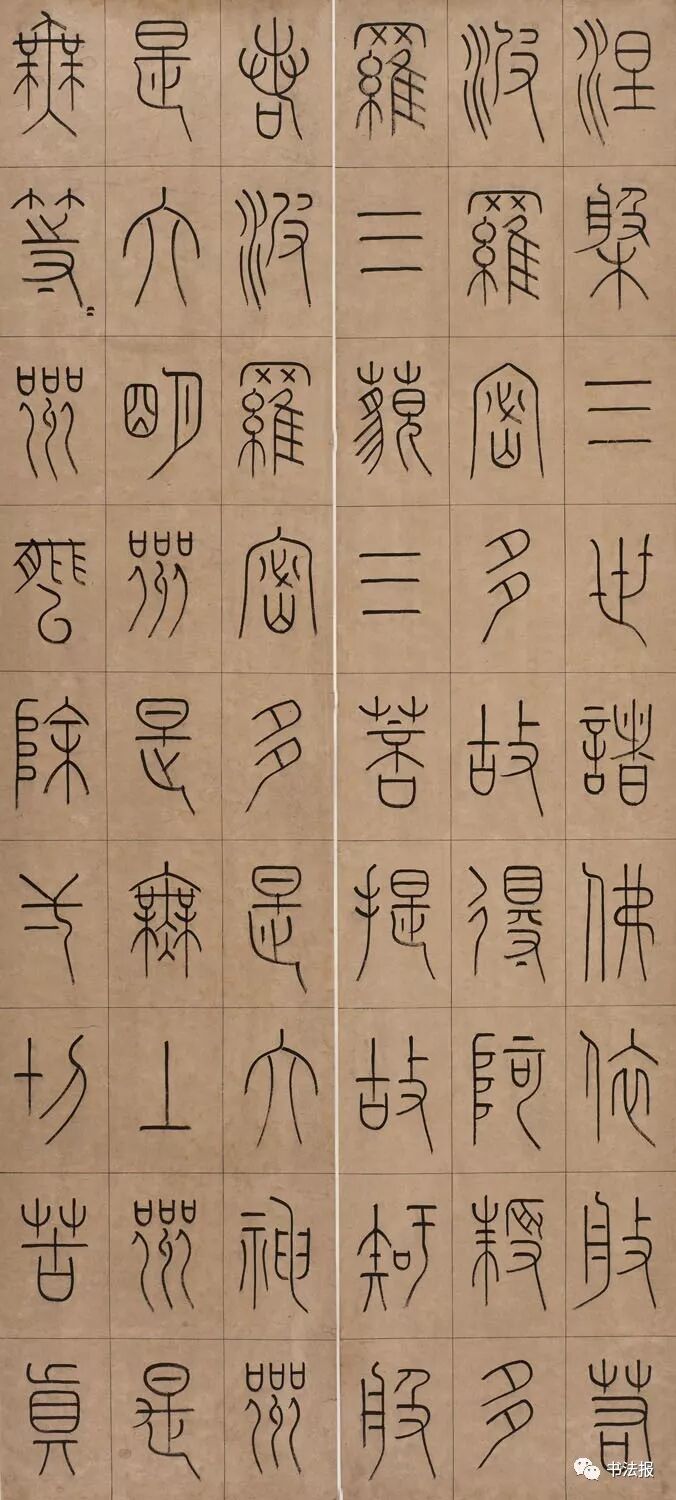 涅槃三世諸佛依般若
波羅密多故得阿耨多
羅三藐三菩提故知般
若波羅密多是大神咒
是大明咒是無上咒是
無等〻咒能除一切苦真
书法报